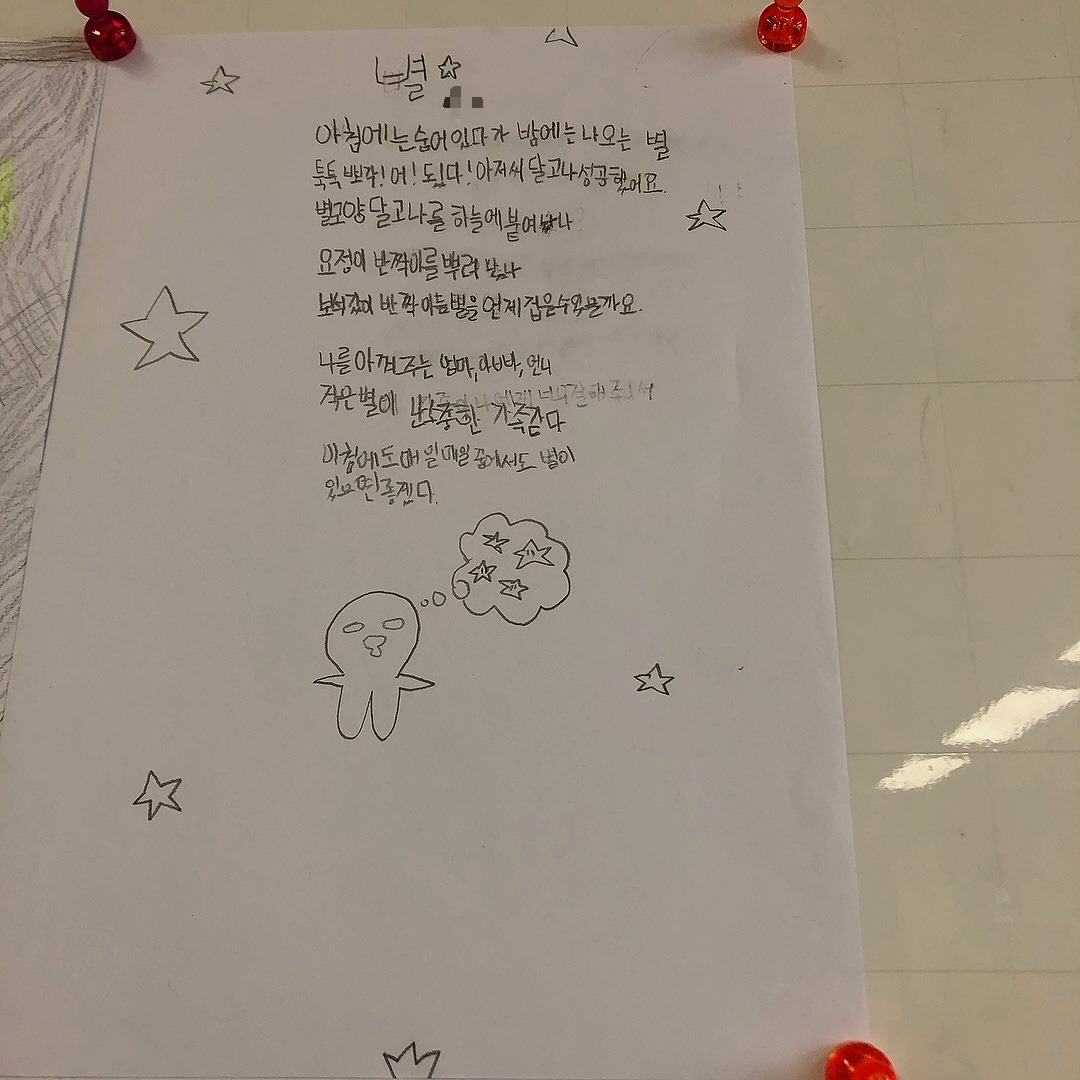 별
아침에는 숨어있다가 밤에는 나오는 별
툭툭 뽀각! 어! 됬다! 아저씨 달고나 성공했어요.
별모양 달고나를 하늘에 붙여놨나
요정이 반짝이를 뿌려 놨나
보석같이 반짝이는 별을 언제 잡을수있을까요.
나를 아껴주는 엄마, 아빠, 언니
작은별이 소중한 가족같다
아침에도 매일매일 꿈에서도 별이
있으면 좋겠다.